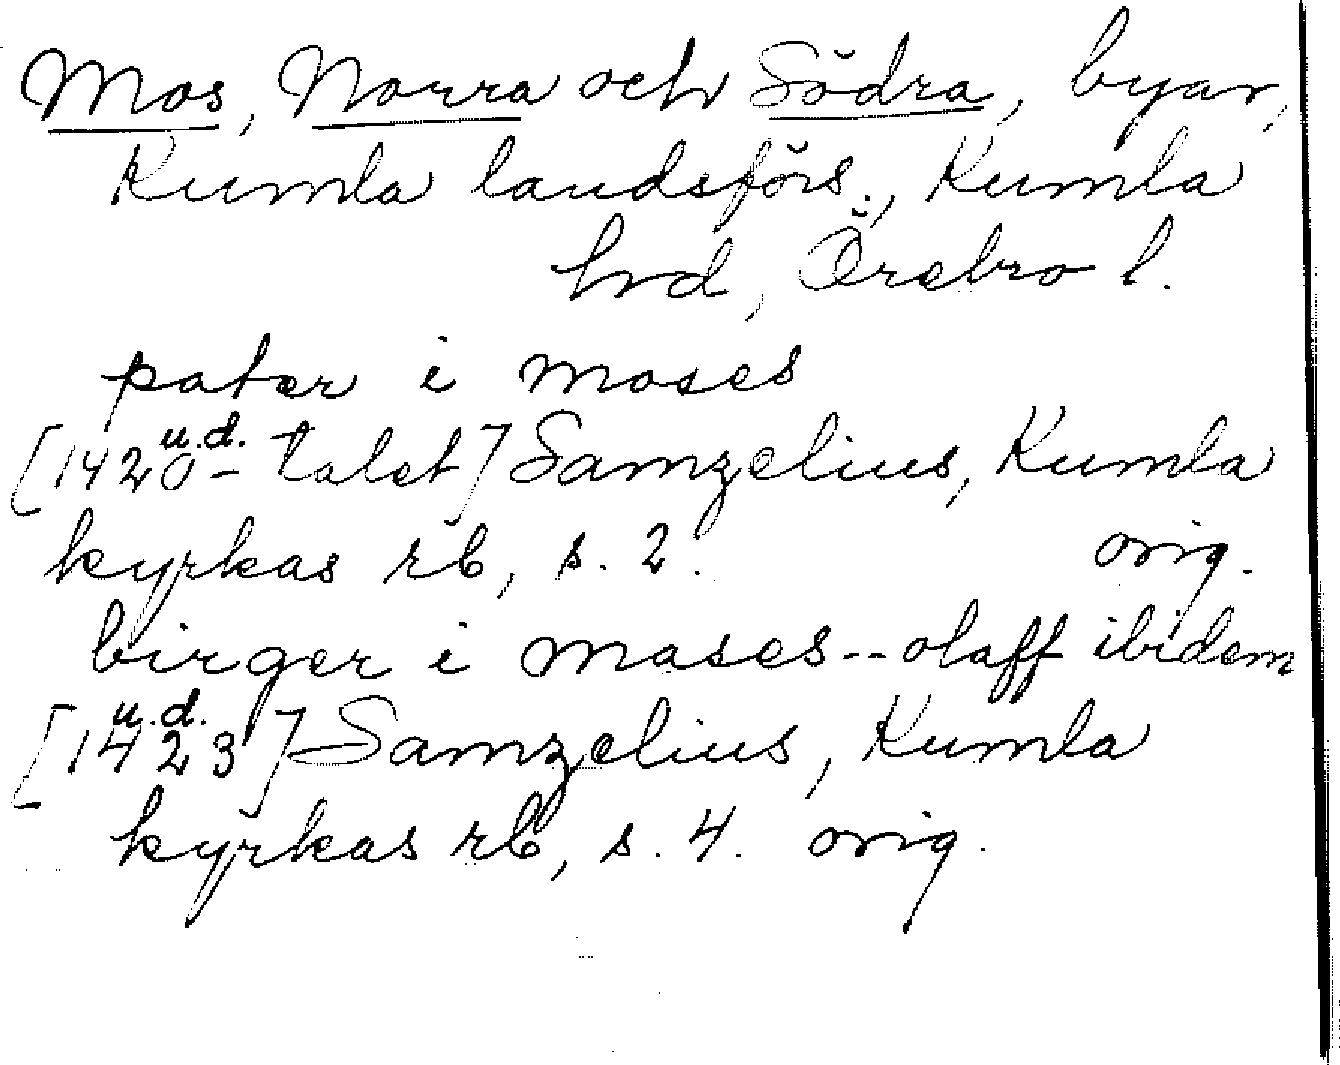 Mos, Norra och Södra, byar,
Kumla landsförs., Kumla
hrd, Örebro l.
pater i moses
[1420-talet] u.d. Samzelius, Kumla
kyrkas rb, s. 2. orig.
birger i mases -- olaff ibidem
[1423] u.d. Samzelius, Kumla
kyrkas rb, s. 4. orig.